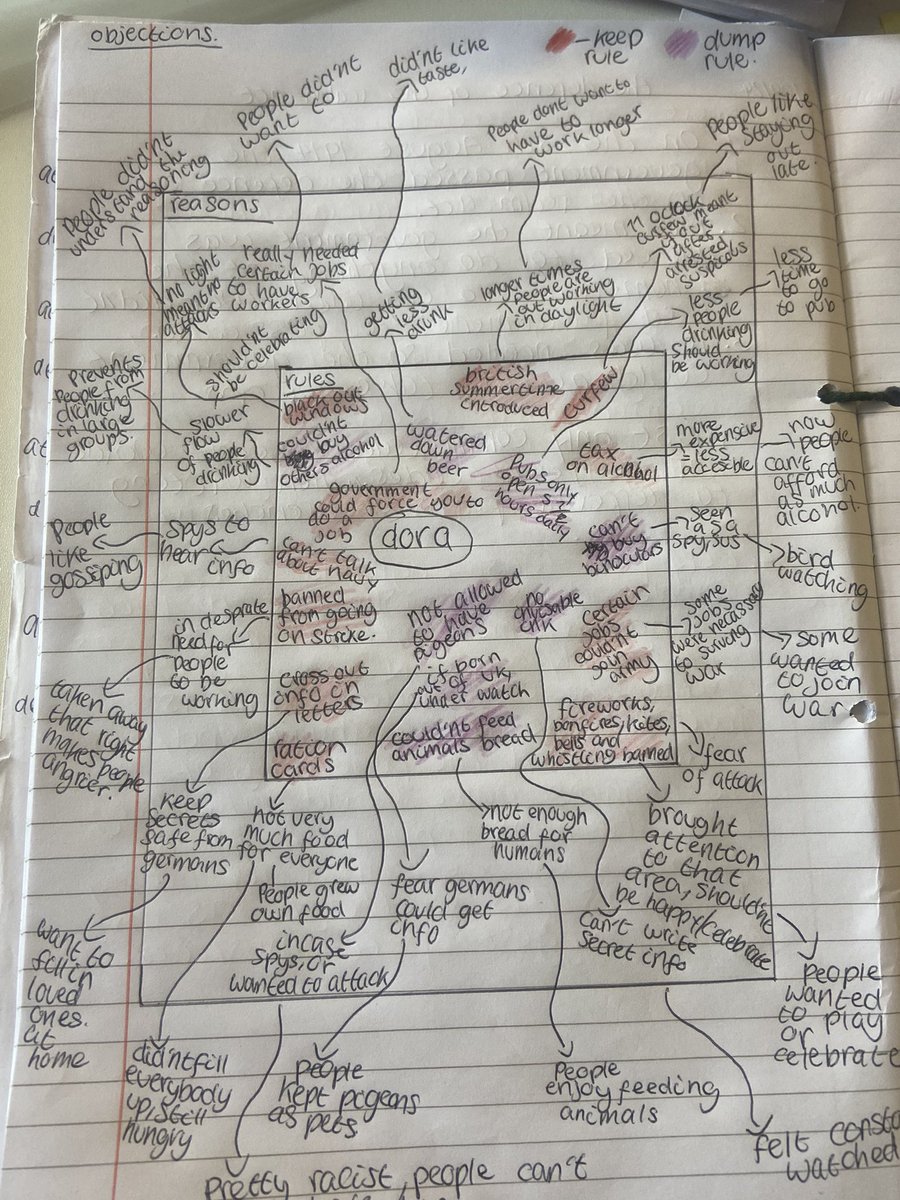 objections.
-keep
rule
dump
rule.
People didn't
want to
did'nt like
taste,
People dont want to
have to
work longer
People like
staying
out
late.
People did'nt
understand the
reasoning
reasons
no light
meant no
attacks
really needed
certain jobs
to have
workers
shouldn't
be celebrating
getting
less
drunk
longer times
people are
out working
in daylight
11 o clock
curfew meant
out
after
arrested
suspicious
less
people
drinking
should
be working
less
time
to go
to pub
Prevents
people from
drinking
in large
groups.
slower
flow
of people
drinking
rules
black out
windows
couldn't
buy
others alcohol
british
summertime
introduced
curfew
watered
down
beer
Pubs only
open
hours daily
tax
on alcohol
more
expensive
less
now
people
can't
afford
as much
alcohol.
government
could force you to
do a
job
dora
can't
buy
binoculars
seen
as a
spy/sus
bird
watching
People
like
gossiping
spys to
hear info
can't talk
about navy
banned
from going
on stricke.
in desprate
need for
people
to be
working
taken away
that right
makes people
angrier.
not allowed
to have
pigeons
no
invisable
ink
certain
jobs
couldnt
join
army
some
jobs
were necessary
to surving
war
some
wanted
to join
war
cross out
info on
letters
if born
out of UK,
under watch
ration
cards
couldn't feed
animals bread
fireworks,
bonfires, kites,
bells and
whistling banned
fear
of attack
keep
secrets
safe from
germans
not very
much food
for everyone
People grew
own food
not enough
bread for
humans
brought
attention
to that
area, shouldnt
be happy/celebrate
fear germans
could get
info
can't write
secret info
incase
spys, or
wanted to attack
want to
fill in
loved
ones.
at
home
did'nt fill
everybody
up, still
hungry
People
kept pigeons
as pets
People
enjoy feeding
animals
People
wanted
to play
or
celebrate
felt
watched
Pretty racist, people can't